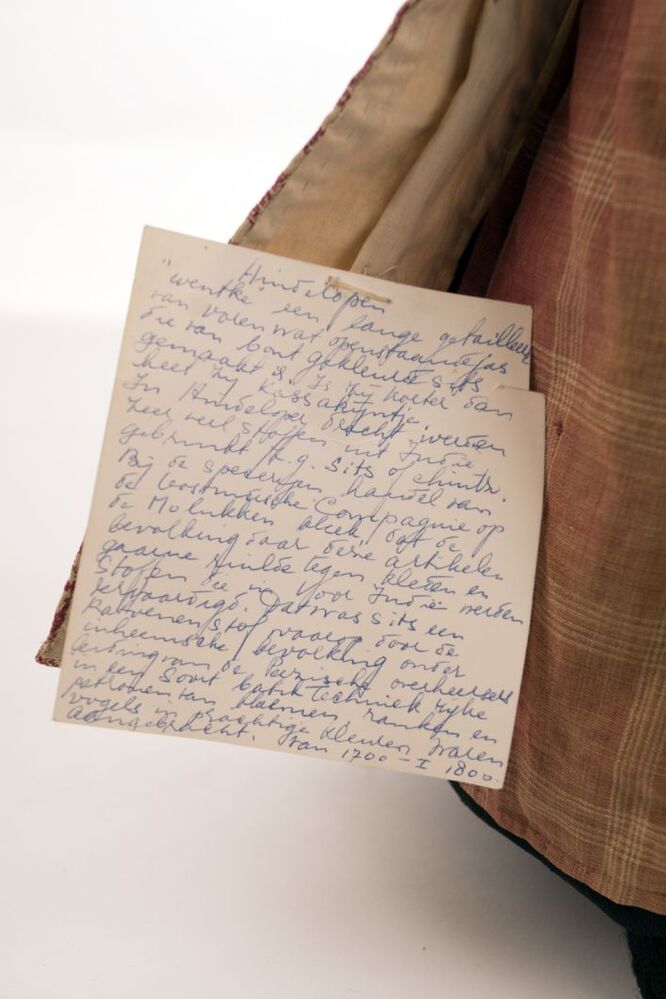 Hindelopen
"wentke" een lange getailleerde
van voren wat openstaande jas
die van bont gekleurde sits
gemaakt is. Is hij korter dan
heet hij Kassakijntje.
In Hindeloper dracht werden
zeer veel stoffen uit Indië
gebruikt n.g. sits of chintz.
Bij de specerijen handel van
de Oostindische Compagnie op
de Molukken bleek, dat de
bevolking daar deze artikelen
gaarne ruilde tegen kleden en
stoffen die in voor Indië werden
vervaardigd. Dat was sits een
katoenen stof waarop door de
inheemsche bevolking onder
leiding van de Perzische overheersers
in een soort batik techniek rijke
patronen van bloemen, ranken en
vogels in prachtige kleuren waren
aangebracht. van 1700 – ± 1800.